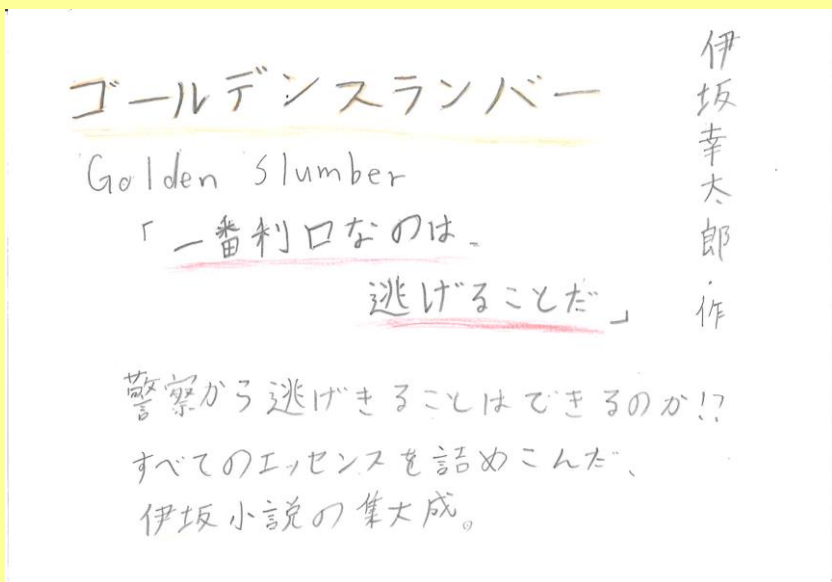 ゴールデンスランバー
Golden Slumber
「一番利口なのは、
逃げることだ」
伊坂幸太郎・作
警察から逃げきることはできるのか!?
すべてのエッセンスを詰めこんだ、
伊坂小説の集大成。